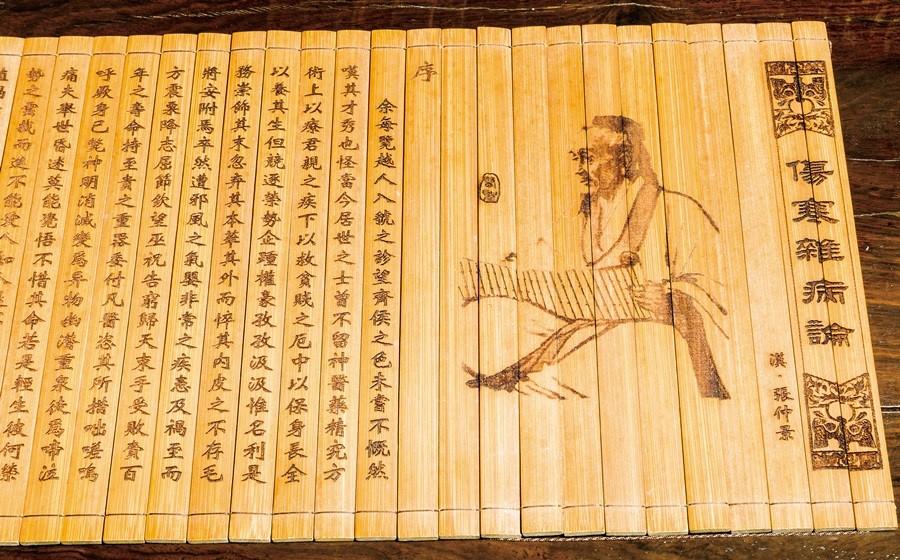 傷寒雜病論
漢·張仲景
序
余每覽越人入虢之診望齊侯之色未嘗不慨然
嘆其才秀也怪當今居世之士曾不留神醫藥精究方
術上以療君親之疾下以救貧賤之厄中以保身長全
以養其生但競逐榮勢企踵權豪孜孜汲汲惟名利是
務崇飾其末忽棄其本華其外而悴其內皮之不存毛
將安附焉卒然遭邪風之氣嬰非常之疾患及禍至而
方震栗降志屈節欽望巫祝告窮歸天束手受敗賫百
年之壽命持至貴之重器委付凡醫恣其所措咄嗟嗚
呼厥身已斃神明消滅變爲異物幽潛重泉徒爲啼泣
痛夫舉世昏迷莫能覺悟不惜其命若是輕生彼何榮
勢之雲哉而進不能愛人